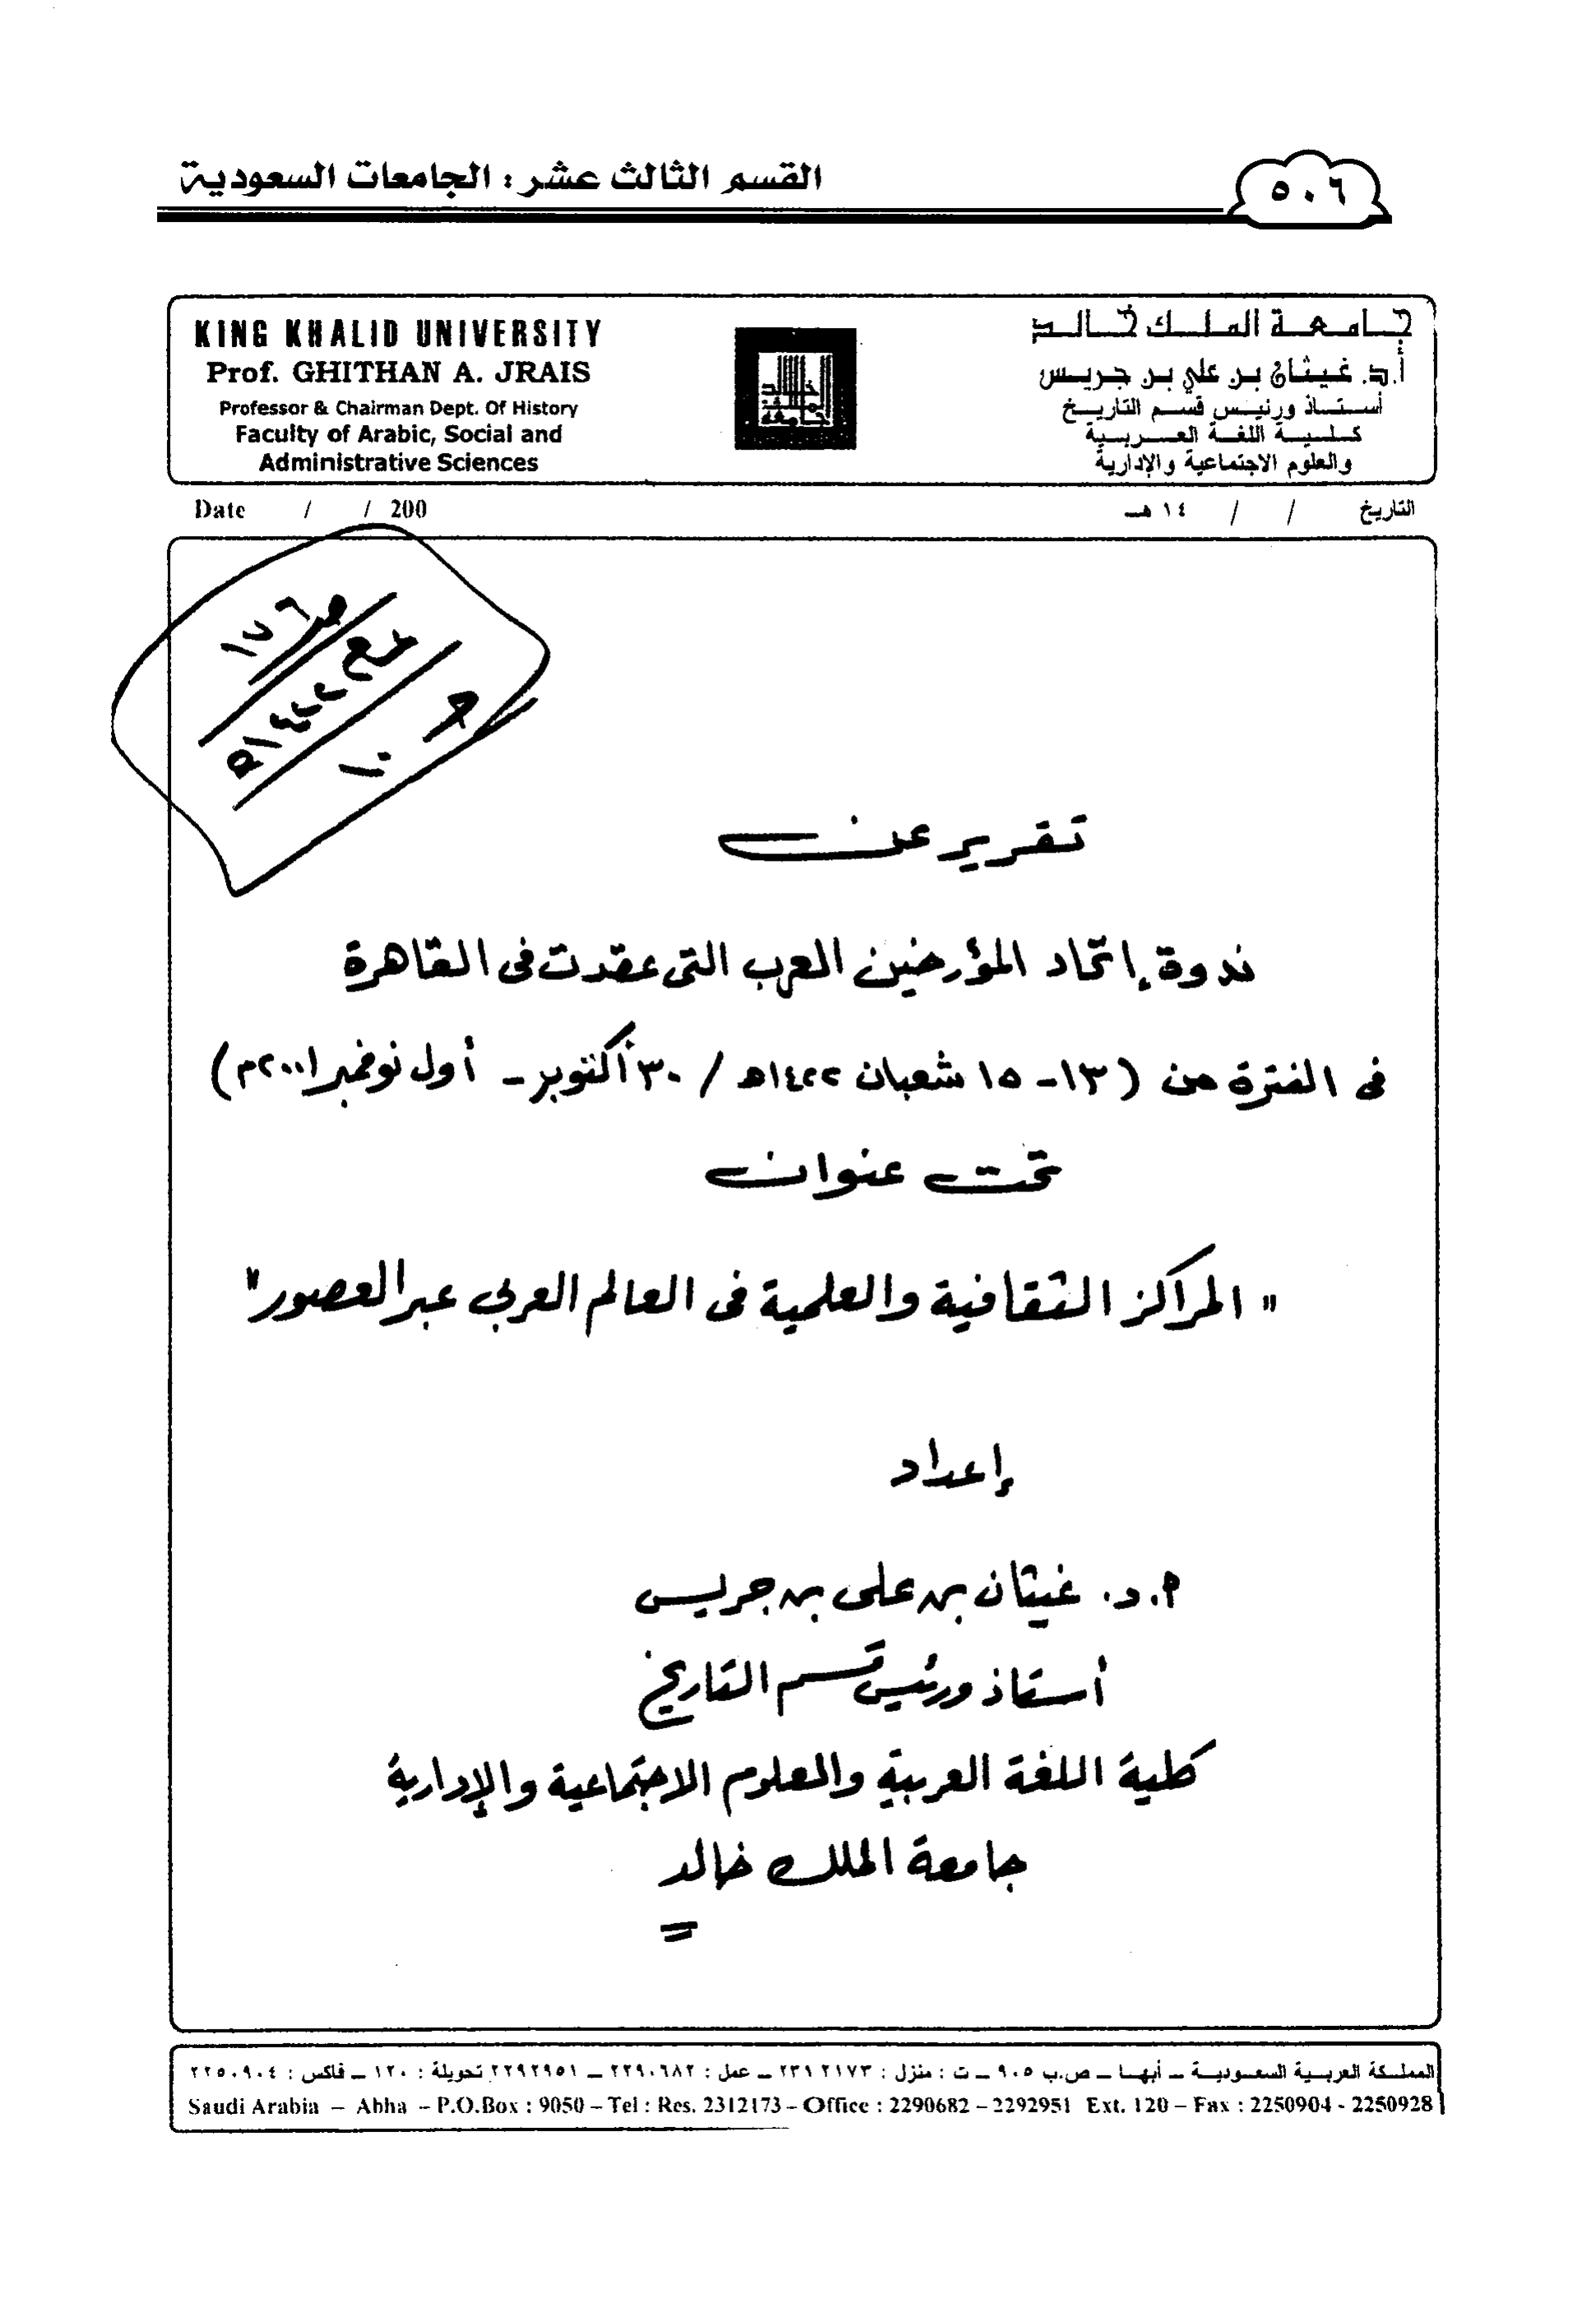 القسم الثالث عشر : الجامعات السعودية
٥٠٦
KING KHALID UNIVERSITY
Prof. GHITHAN A. JRAIS
Professor & Chairman Dept. Of History
Faculty of Arabic, Social and
Administrative Sciences
جامعة الملك خالد
أ.د. غيثان بن علي بن جريس
أستاذ ورئيس قسم التاريخ
كلية اللغة العربية
والعلوم الاجتماعية والإدارية
Date / / 200
التاريخ / / ١٤ هـ
١٤٢٢هـ
تقرير عن
ندوة إتحاد المؤرخين العرب التى عقدت فى القاهرة
فى الفترة من (١٣- ١٥ شعبان ١٤٢٢هـ / ٣٠ أكتوبر - أول نوفمبر ٢٠٠١م)
تحت عنوان
" المراكز الثقافية والعلمية فى العالم العربى عبر العصور "
إعداد
أ.د. غيثان بن على بن جريس
أستاذ ورئيس قسم التاريخ
كلية اللغة العربية والعلوم الاجتماعية والإدارية
جامعة الملك خالد
المملكة العربية السعودية – أبها – ص.ب ٩٠٥ – ت : منزل : ٢٣١٢١٧٣ – عمل : ٢٢٩٠٦٨٢ – ٢٢٩٢٩٥١ تحويلة : ١٢٠ – فاكس : ٢٢٥٠٩٠٤
Saudi Arabia – Abha – P.O.Box : 9050 – Tel : Res. 2312173 – Office : 2290682 – 2292951 Ext. 120 – Fax : 2250904 - 2250928